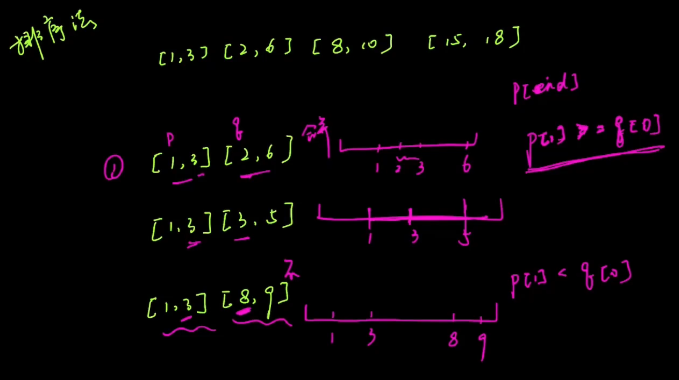 排序法
[1,3] [2,6] [8,10] [15,18]
p[end]
p q
① [1,3] [2,6] 1 2 3 6 p[1] >= q[0]
[1,3] [3,5] 1 3 5
[1,3] [8,9] 不 1 3 8 9 p[1] < q[0]